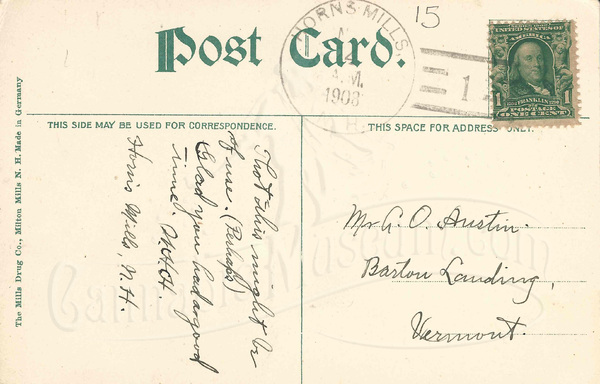 15
Post Card.
HORNS MILLS.
A.M.
1908
N.H.
1
SERIES 1902
UNITED STATES OF
AMERICA
FRANKLIN
1 1
POSTAGE
ONE CENT
THIS SIDE MAY BE USED FOR CORRESPONDENCE.
THIS SPACE FOR ADDRESS ONLY.
The Mills Drug Co., Milton Mills N. H. Made in Germany
Thot this might be
of use. (Perhaps)
Glad you had a good
time. M.H.H.
Horn's Mills, N.H.
Mr G. O. Austin.
Barton Landing,
Vermont.